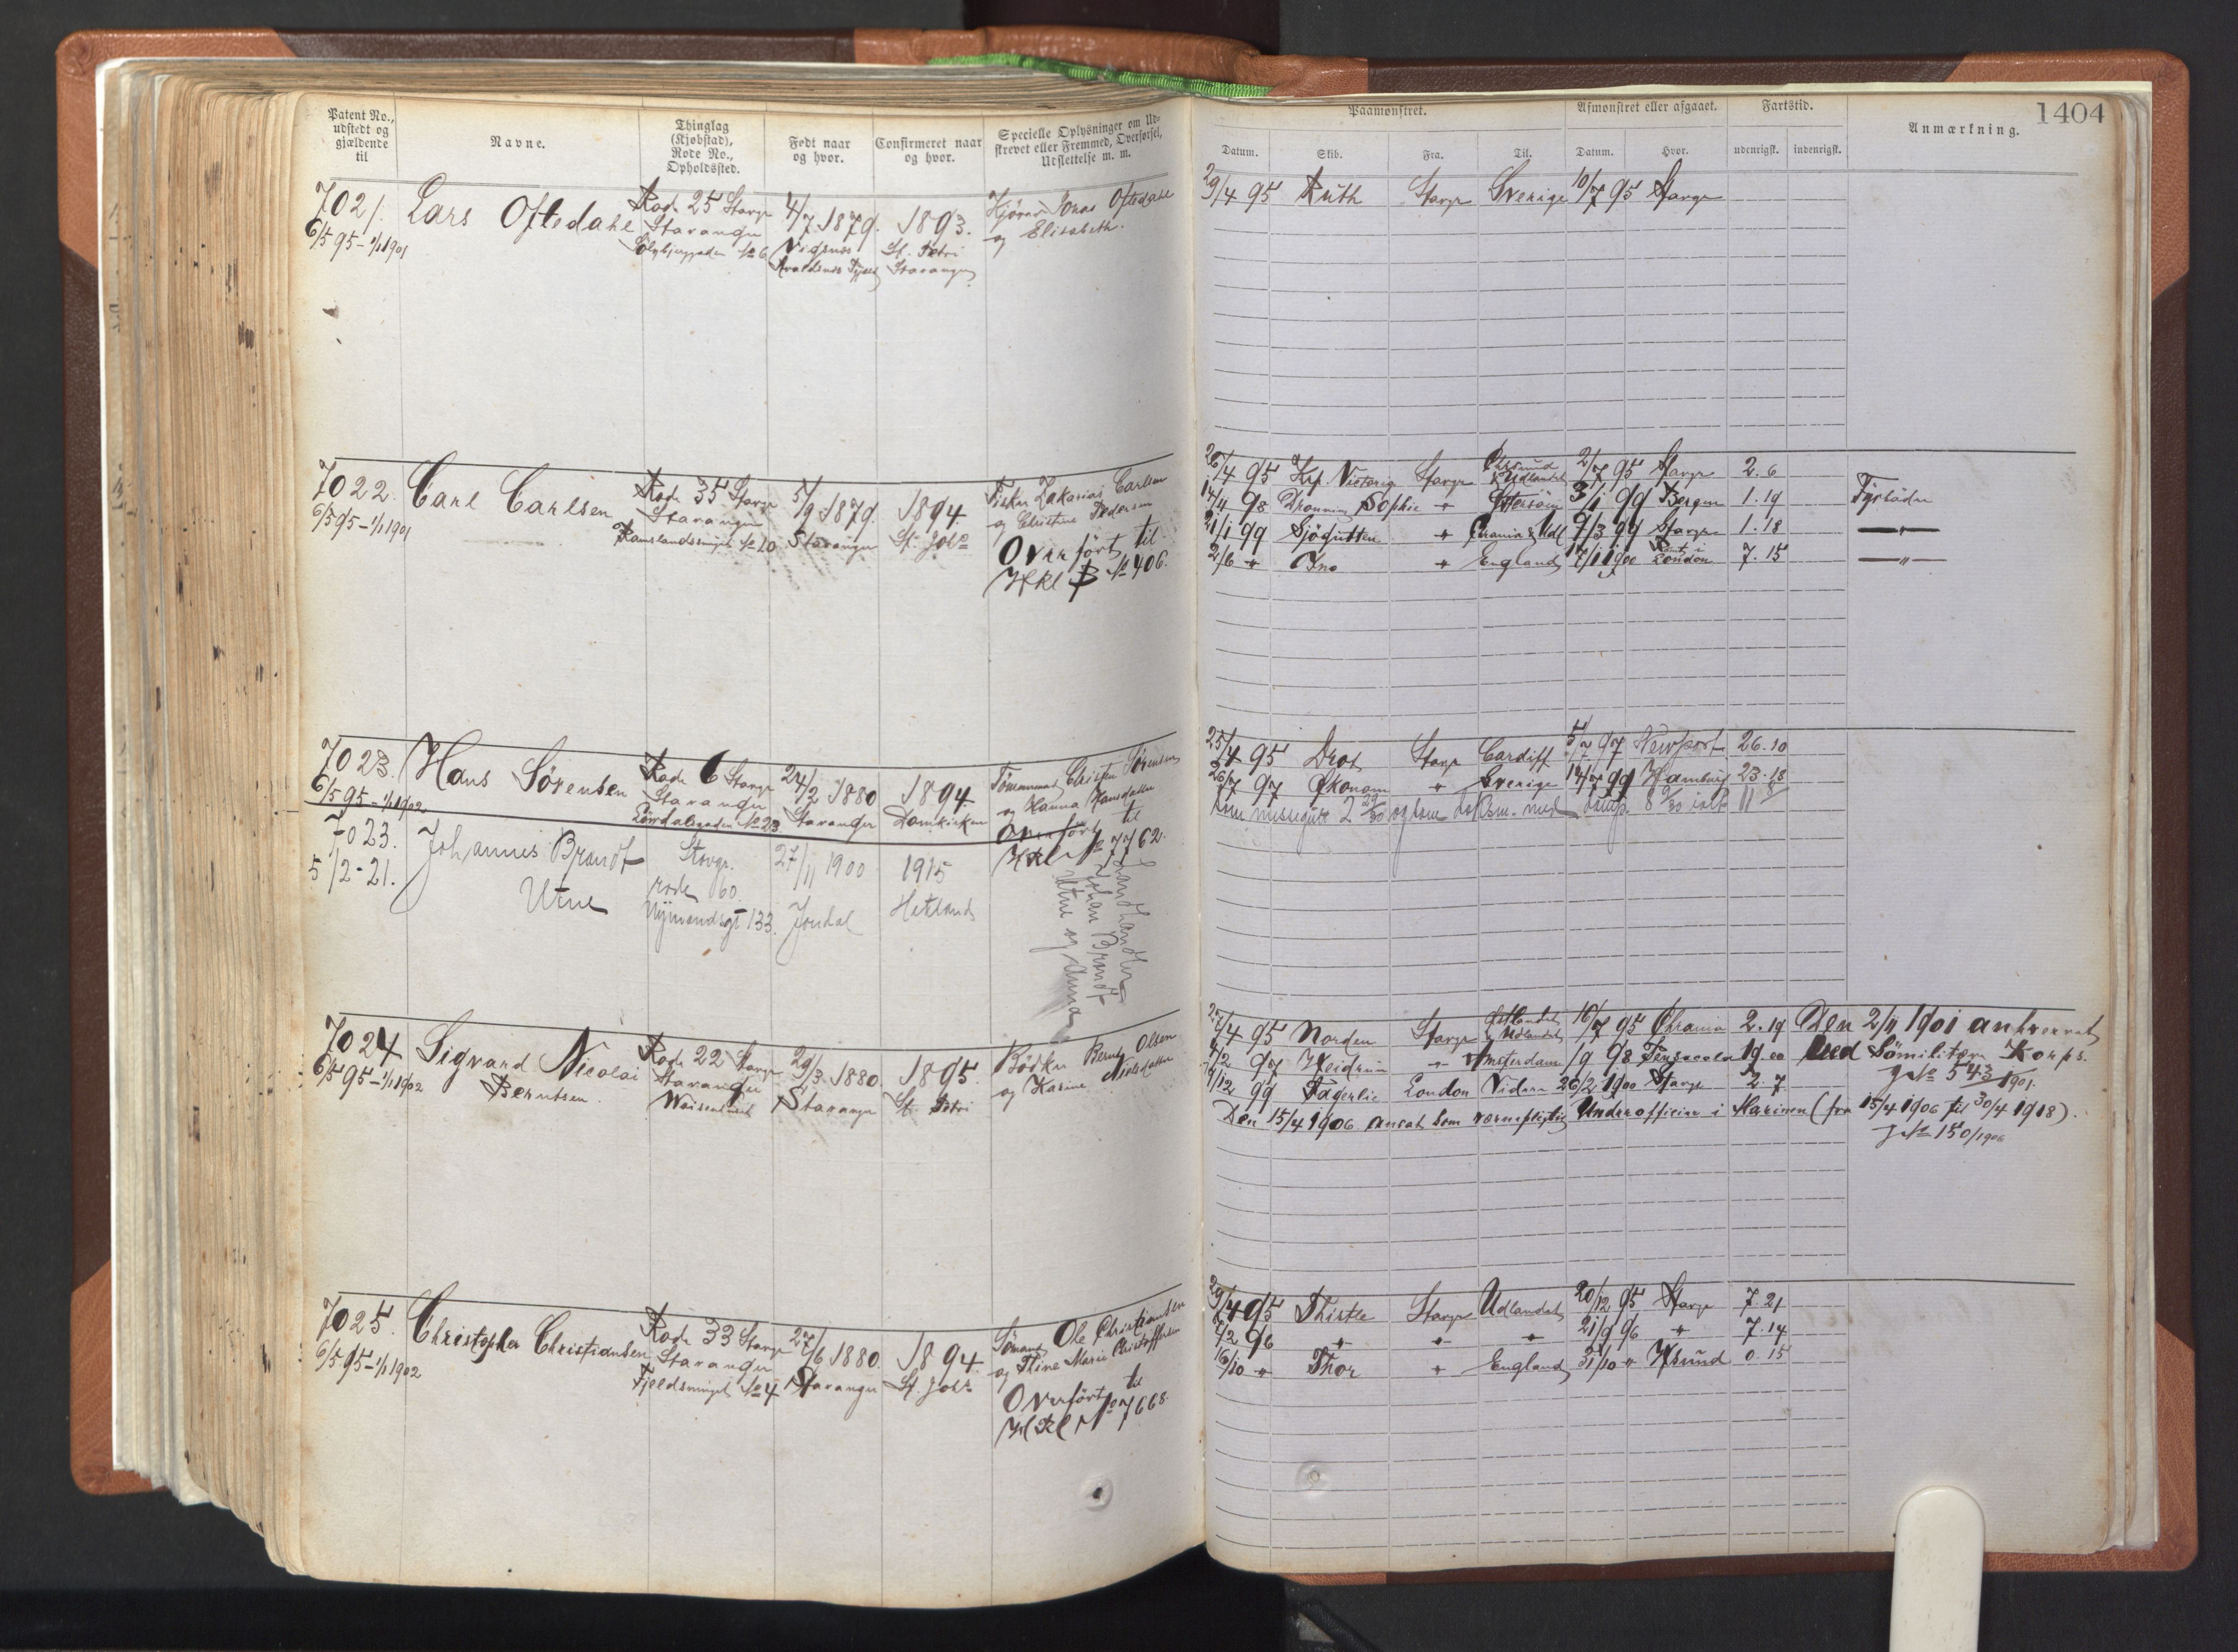 Patent No.,
udstedt og
gjældende
til
Navne.
Thinglag
(Kjøbstad),
Rode No.,
Opholdssted.
Født naar
og hvor.
Confirmeret naar
og hvor.
Specielle Oplysninger om Ud-
skrevet eller Fremmed, Overførsel,
Udslettelse m. m.
Paamønstret.
Afmønstret eller afgaaet.
Fartstid.
Anmærkning.
1404
Datum.
Skib.
Fra.
Til.
Datum.
Hvor.
udenrigsk.
indenrigsk.
7021.
6/5 95 - 1/1 1901
Lars Oftedahl
Rode 25 Stavgr
Stavanger
No 6
4/7 1879.
Vigsnes
1893.
St. Petri
Stavanger
Jonas Oftedahl
og Elisabeth.
29/4 95 Ruth Stavgr Sverige 10/7 95 Stavgr
7022.
6/5 95 - 1/1 1901
Carl Carlsen
Rode 35 Stavgr
Stavanger
No 10
5/9 1879.
Stavanger
1894.
St. Johs
Fisker Zakarias Carlsen
og Christine Pedersen
Overført til
Hkl B No 406.
26/4 95 Krp. Victoria Stavgr Chrsund & Udlandet 2/7 95 Stavgr 2. 6
14/4 98 Dronning Sophie " Østersöen 3/1 99 Bergen 1. 19 Fyrböder
21/1 99 Sjøgutten " Chrania & Udl 9/3 99 Stavgr 1. 18 — " —
2/6 " Ino " England 17/1 1900 London 7. 15 — " —
7023.
6/5 95 - 1/1 1902
Hans Sörensen
Rode 6 Stavgr
Stavanger
Lövdalsgaden No 23
24/2 1880
Stavanger
1894.
Domkirken
Tömmermand Christen Sörensen
og Hanna Hansdatter
Overført til
HKl No 7762.
25/4 95 Drot Stavgr Cardiff 5/7 97 Newport 26. 10
26/7 97 Økonom " Sverige 14/7 99 Hamburg 23. 18
som messegutt 2 29/30 og som
7023.
5/2-21.
Johannes Brandt
Utne
Stavgr.
rode 60.
Nymandsgt 133.
27/11 1900
Jondal
1915
Hetland
Landhandler
Johan Brandt
Utne og Anna
7024
6/5 95 - 1/1 1902
Sigvard Nicolai
Berntsen.
Rode 22 Stavgr
Stavanger
Waisenhuset
29/3 1880.
Stavanger
1895.
St. Petri
Bödker Bernt Olsen
og Karine Nielsdatter
27/4 95 Norden Stavgr Østlandet & Udlandet 16/7 95 Chrania 2. 19 Den 2/11 1901 antvervet
4/2 97 Heidrun " Amsterdam 1/9 98 Pensacola 19. 00 ved Sömilitære Korps.
7/12 99 Fagerlie London Vidare 26/2 1900 Stavgr 2. 7 J No 543/1901.
Den 15/4 1906 ansat som værnepligtig Underofficier i Marinen (fra 15/4 1906 til 30/4 1918).
J No 150/1906
7025.
6/5 95 - 1/1 1902
Christopher Christiansen
Rode 33 Stavgr
Stavanger
Fjeldsmuget No 4
27/6 1880.
Stavanger
1894.
St. Johs
Sömand Ole Christiansen
og Stine Marie Christoffersen
Overført til
HKl No 7668.
29/4 95 Thistle Stavgr Udlandet 20/12 95 Stavgr 7. 21
4/2 96 " " " 21/9 96 " 7. 14
16/10 " Thor " England 31/10 " Hsund 0. 15